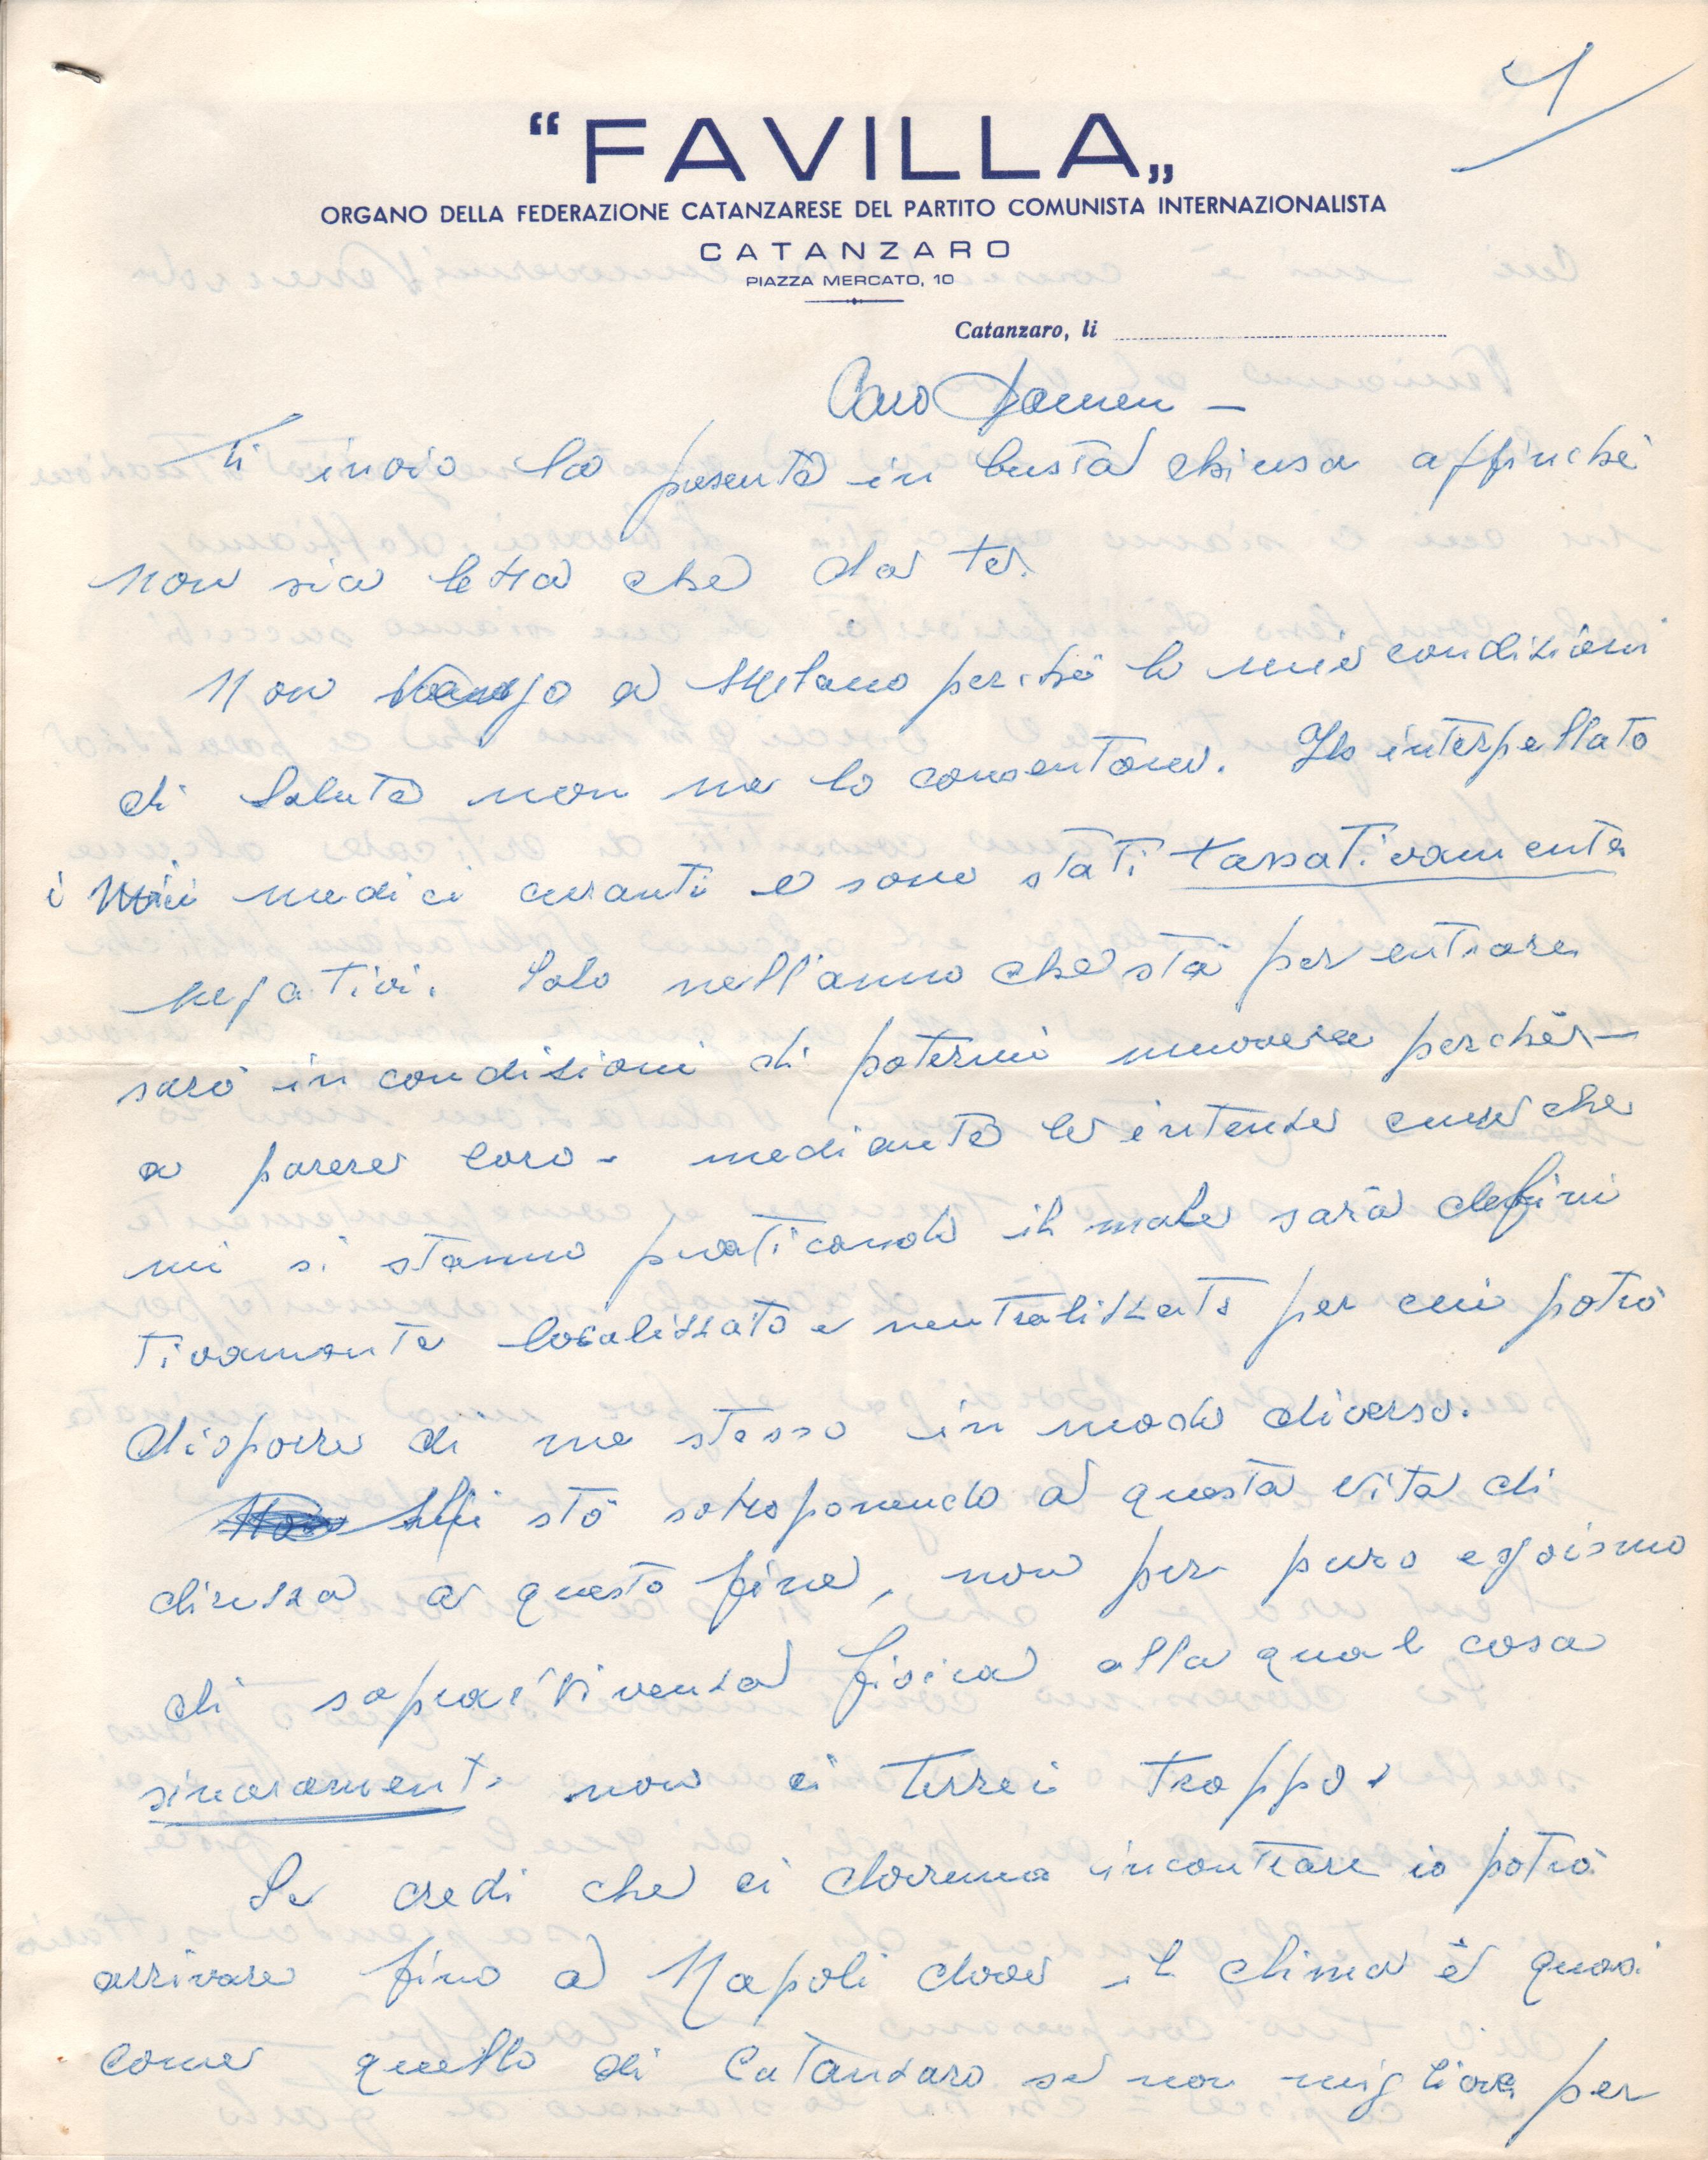 1
"FAVILLA„
ORGANO DELLA FEDERAZIONE CATANZARESE DEL PARTITO COMUNISTA INTERNAZIONALISTA
CATANZARO
PIAZZA MERCATO, 10
Catanzaro, li
Caro Damen –
Ti invio la presente in busta chiusa affinchè
non sia letta che da te.
Non vengo a Milano perchè le mie condizioni
di salute non me lo consentono. Ho interpellato
i miei medici curanti e sono stati tassativamente
negativi. Solo nell'anno che stà per entrare
sarò in condizioni di potermi muovere perchè –
a parere loro – mediante le intense cure che
mi si stanno praticando il male sarà defini
tivamente localizzato e neutralizzato per cui potrò
disporre di me stesso in modo diverso.
Mi stò sottoponendo a questa vita di
clinica a questo fine, non per puro egoismo
di sopravvivenza fisica alla qual cosa
sinceramente non ci terrei troppo.
Se credi che ci dovremo incontrare io potrò
arrivare fino a Napoli dove il clima è quasi
come quello di Catanzaro se non migliore per